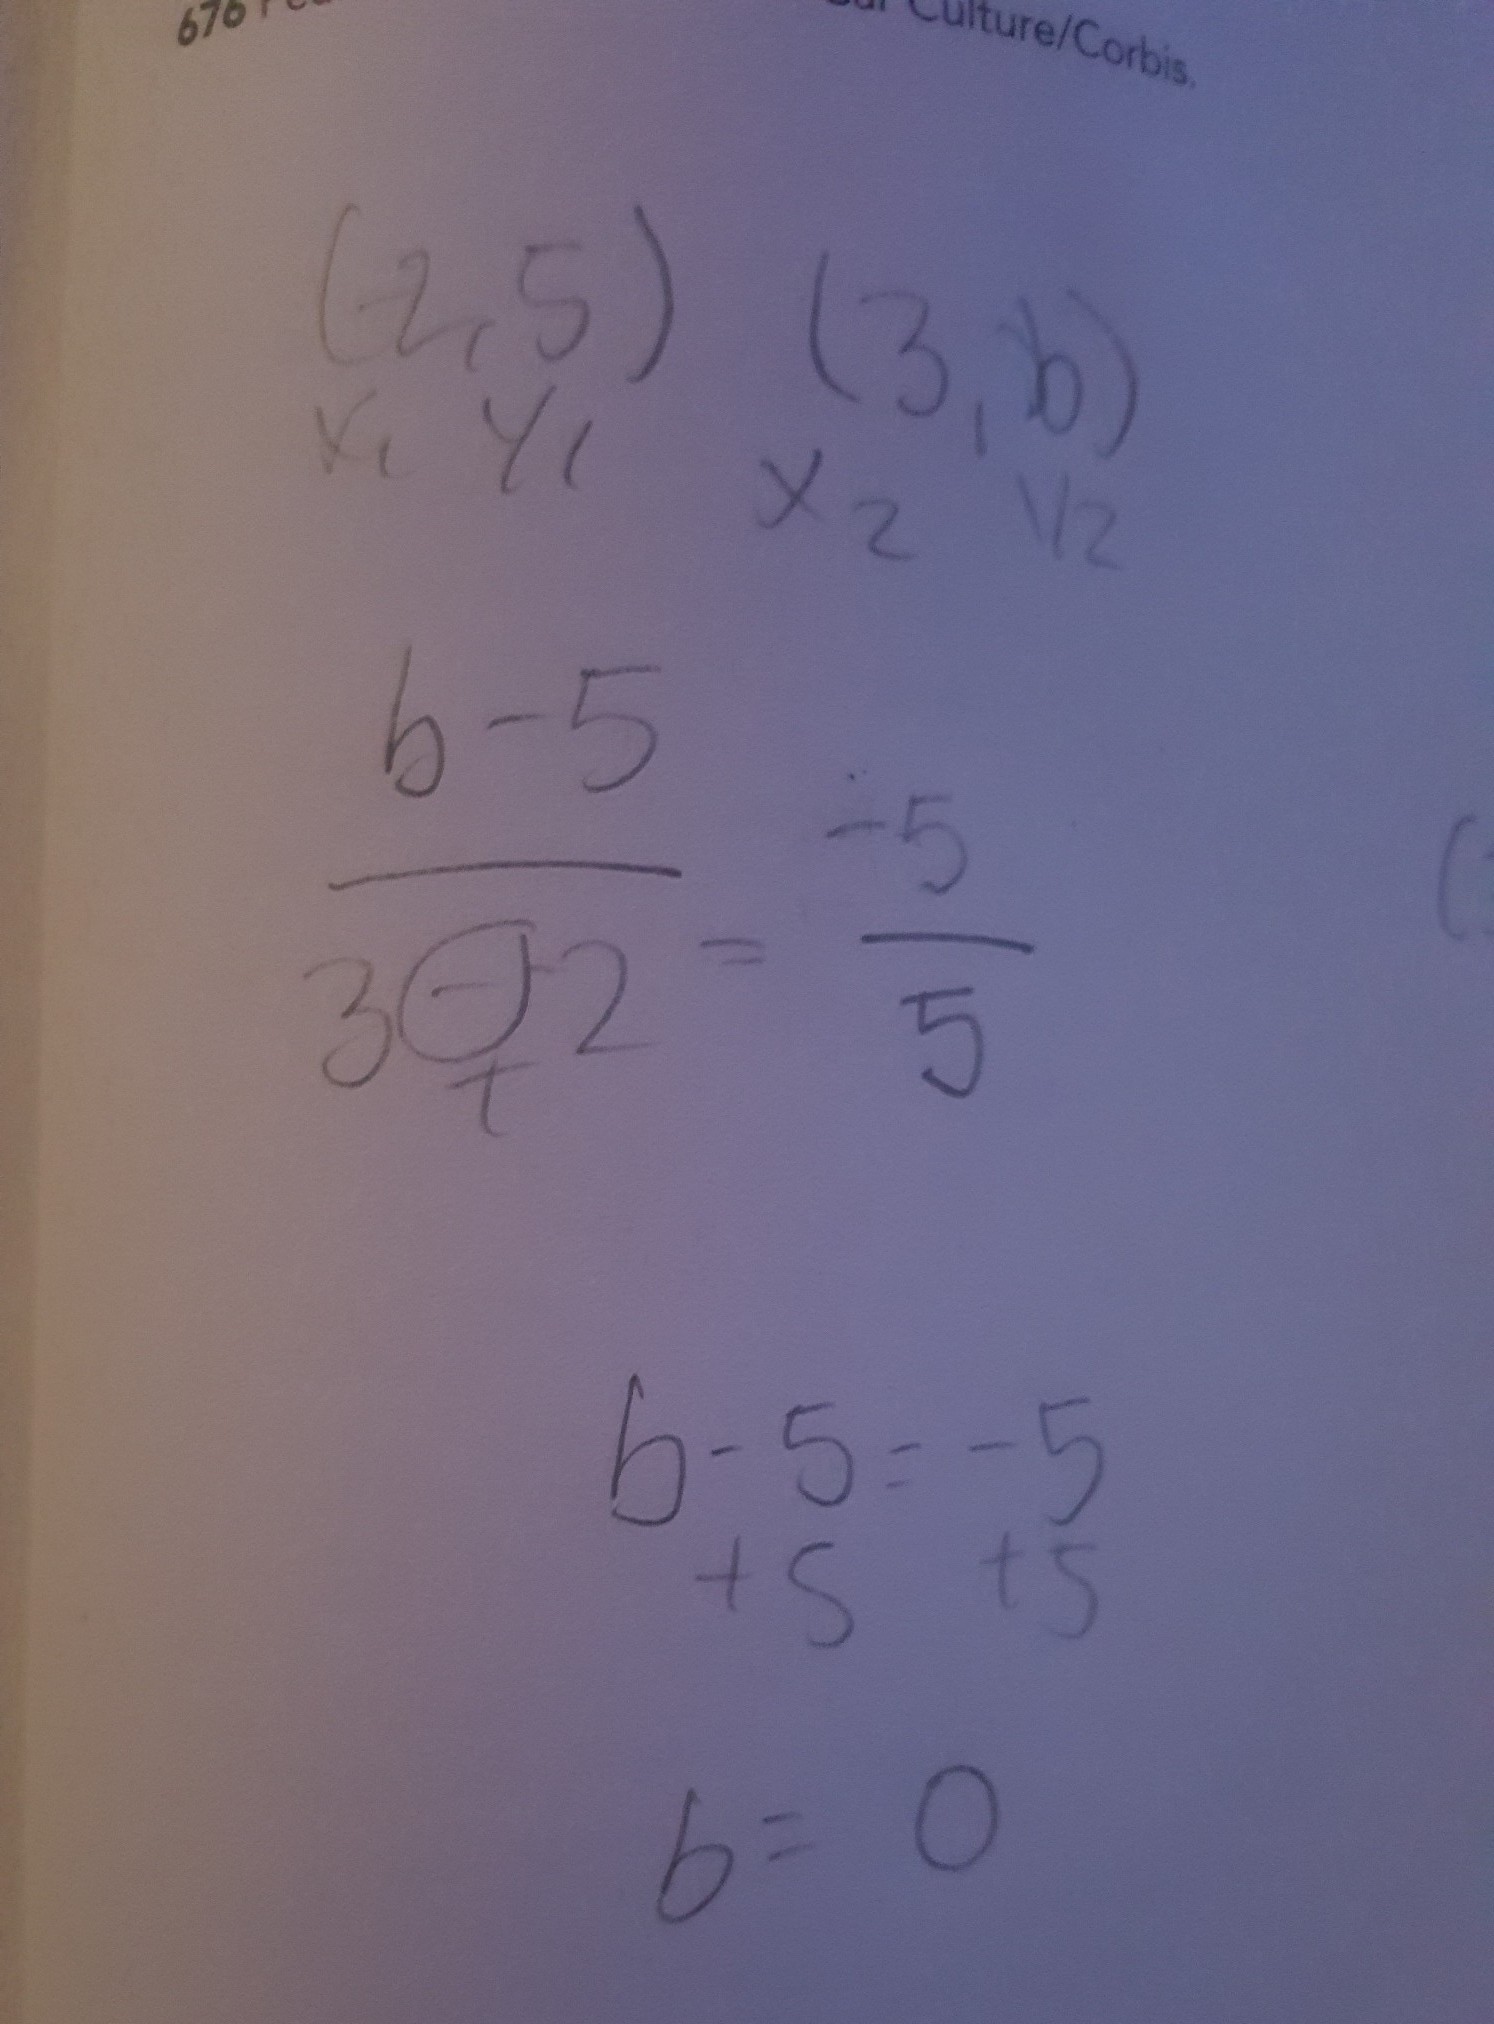 676
Culture/Corbis.
(-2,5) (3,b)
x1 y1 x2 y2
b-5
-5
3--2 =
5
+
b-5=-5
+5 +5
b= 0